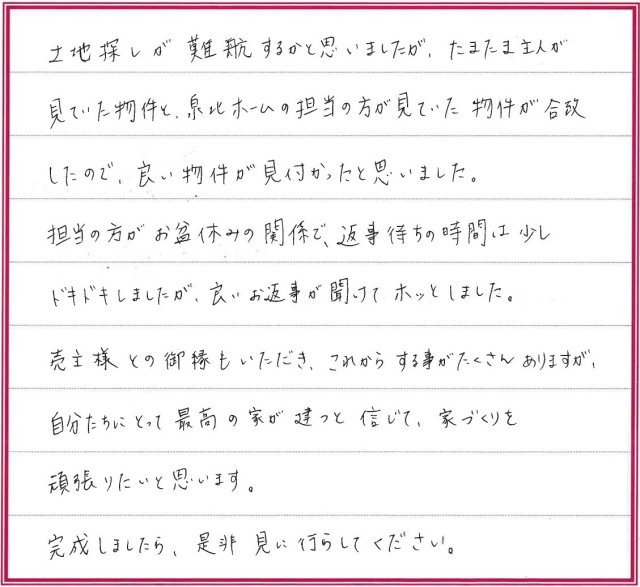 土地探しが難航するかと思いましたが、たまたま主人が
見ていた物件と、泉北ホームの担当の方が見ていた物件が合致
したので、良い物件が見付かったと思いました。
担当の方がお盆休みの関係で、返事待ちの時間は少し
ドキドキしましたが、良いお返事が聞けてホッとしました。
売主様との御縁もいただき、これからする事がたくさんありますが、
自分たちにとって最高の家が建つと信じて、家づくりを
頑張りたいと思います。
完成しましたら、是非見に行らしてください。